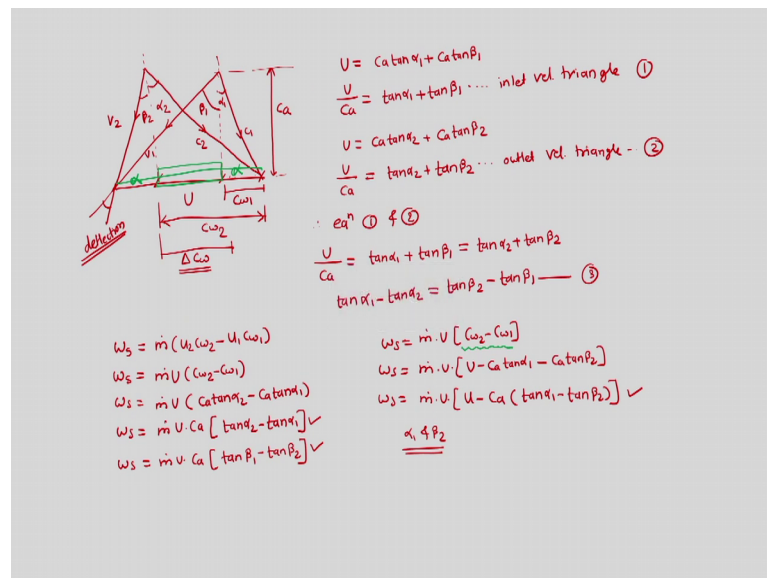 V₂
β₂
α₂
β₁
α₁
Ca
V₁
C₂
C₁
α
α
U
Cω₁
Cω₂
ΔCω
deflection
U = Catanα₁ + Catanβ₁
U/Ca = tanα₁ + tanβ₁ .... inlet vel triangle ①
U = Catanα₂ + Catanβ₂
U/Ca = tanα₂ + tanβ₂ ... outlet vel. triangle -- ②
∴ eqⁿ ① & ②
U/Ca = tanα₁ + tanβ₁ = tanα₂ + tanβ₂
tanα₁ - tanα₂ = tanβ₂ - tanβ₁ —— ③
ωs = ṁ(U₂Cω₂ - U₁Cω₁)
ωs = ṁU(Cω₂-Cω₁)
ωs = ṁU(Catanα₂ - Catanα₁)
ωs = ṁU.Ca[tanα₂-tanα₁] ✓
ωs = ṁU.Ca[tanβ₁-tanβ₂] ✓
ωs = ṁ.U[Cω₂-Cω₁]
ωs = ṁ.U.[U-Catanα₁ - Catanβ₂]
ωs = ṁ.U.[U-Ca(tanα₁-tanβ₂)] ✓
α₁ & β₂